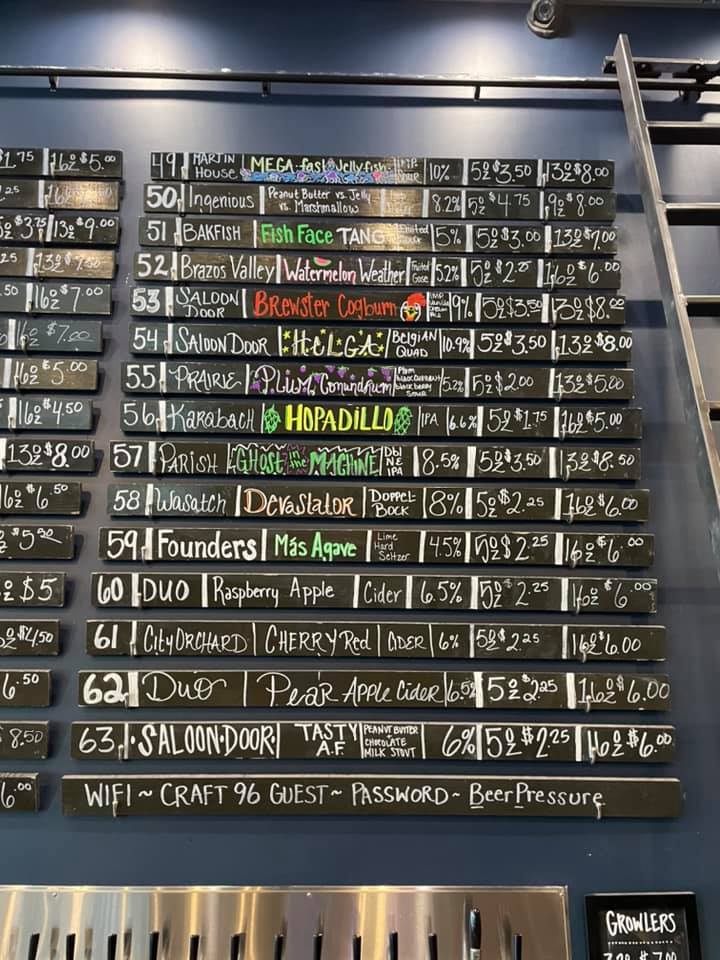 $1.75 16oz $5.00
49 MARTIN HOUSE MEGA-fast Jellyfish 10% 5oz $3.50 13oz $8.00
.25
50 Ingenious Peanut Butter vs. Jelly vs. Marshmallow 8.2% 5oz $4.75 9oz $8.00
5oz $3.75 13oz $9.00
51 BAKFISH Fish Face TANG 5% 5oz $3.00 13oz $7.00
.25 13oz $7.50
52 Brazos Valley Watermelon Weather Fruited Gose 5.2% 5oz $2.25 16oz $6.00
.50 16oz $7.00
53 SALOON DOOR BREWSTER Cogburn 9% 5oz $3.50 13oz $8.00
16oz $7.00
54 SALOON DOOR H.E.L.G.A. BELGIAN QUAD 10.9% 5oz $3.50 13oz $8.00
16oz $5.00
55 PRAIRIE PLUM Conundrum Plum blackcurrant blackberry SOUR 5.2% 5oz $2.00 13oz $5.00
16oz $4.50
56 Karabach HOPADILLO IPA 6.6% 5oz $1.75 16oz $5.00
13oz $8.00
57 PARISH GHOST IN THE MACHINE Dbl NE IPA 8.5% 5oz $3.50 13oz $8.50
16oz $6.50
58 Wasatch DEVASTATOR DOPPEL-BOCK 8% 5oz $2.25 16oz $6.00
$5.50
59 Founders Más Agave Lime Hard Seltzer 4.5% 5oz $2.25 16oz $6.00
oz $5
60 DUO Raspberry Apple Cider 6.5% 5oz $2.25 16oz $6.00
oz $4.50
61 CITY ORCHARD CHERRY Red CIDER 6% 5oz $2.25 16oz $6.00
6.50
62 Duo Pear APPLE Cider 6.5% 5oz $2.25 16oz $6.00
8.50
63 ·SALOON·DOOR· TASTY A.F PEANUT BUTTER CHOCOLATE MILK STOUT 6% 5oz $2.25 16oz $6.00
6.00
WIFI ~ CRAFT 96 GUEST ~ PASSWORD ~ BeerPressure
GROWLERS